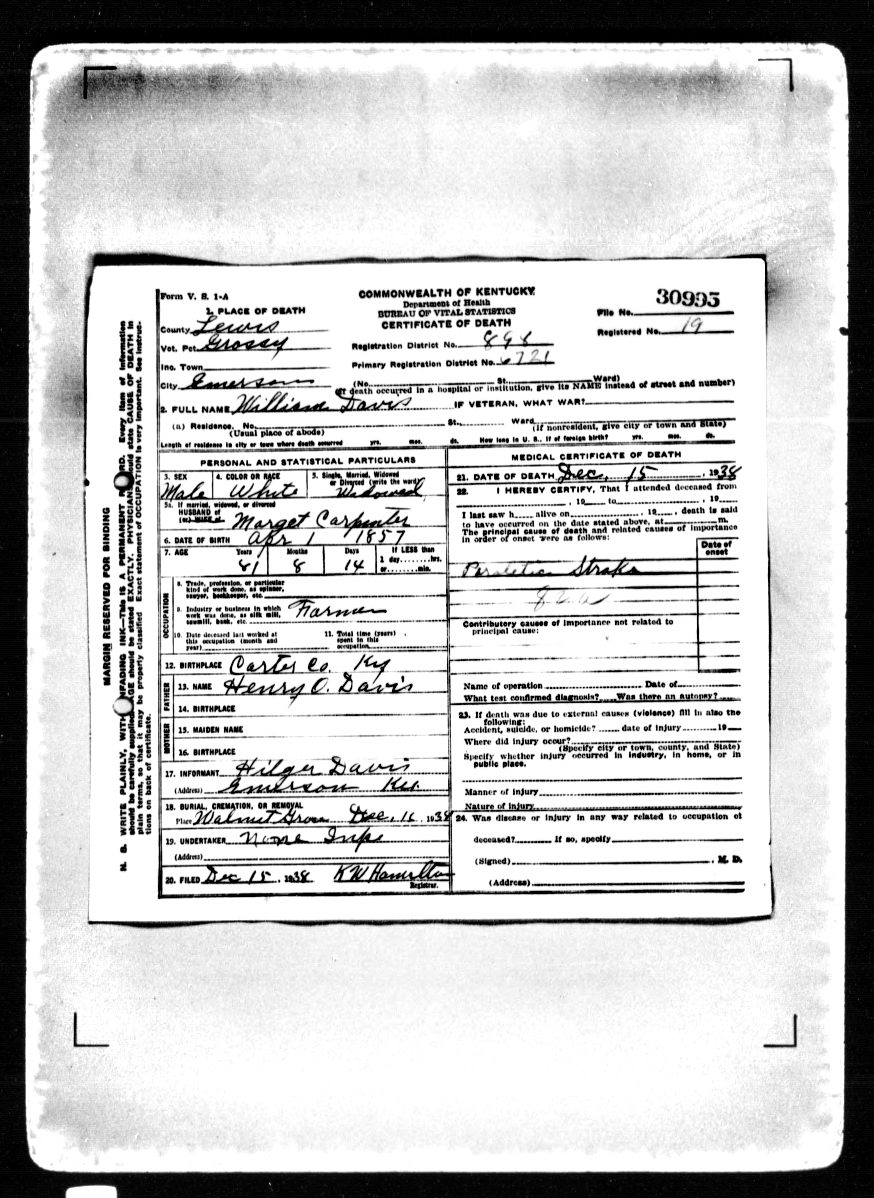 Form V. S. 1-A
COMMONWEALTH OF KENTUCKY
Department of Health
BUREAU OF VITAL STATISTICS
CERTIFICATE OF DEATH
File No. 30995
Registered No. 19
1. PLACE OF DEATH
County Lewis
Vot. Pct. Grossy
Registration District No. 898
Inc. Town
Primary Registration District No. 6721
City Emerson (No. St. Ward)
(If death occurred in a hospital or institution, give its NAME instead of street and number)
2. FULL NAME William Davis IF VETERAN, WHAT WAR?
(a) Residence, No. St. Ward
(Usual place of abode) (If nonresident, give city or town and State)
Length of residence in city or town where death occurred yrs. mos. ds. How long in U. S., if of foreign birth? yrs. mos. ds.
PERSONAL AND STATISTICAL PARTICULARS
3. SEX Male
4. COLOR OR RACE White
5. Single, Married, Widowed
or Divorced (write the word)
Widowed
5a. If married, widowed, or divorced
HUSBAND of
(or) WIFE of Marget Carpenter
6. DATE OF BIRTH Apr 1 1857
7. AGE Years Months Days If LESS than
81 8 14 1 day hrs.
or min.
OCCUPATION
8. Trade, profession, or particular
kind of work done, as spinner,
sawyer, bookkeeper, etc.
9. Industry or business in which
work was done, as silk mill,
sawmill, bank, etc.
Farmer
10. Date deceased last worked at
this occupation (month and
year)
11. Total time (years)
spent in this
occupation
12. BIRTHPLACE Carter Co. Ky
FATHER
13. NAME Henry O. Davis
14. BIRTHPLACE
MOTHER
15. MAIDEN NAME
16. BIRTHPLACE
17. INFORMANT Hilger Davis
(Address) Emerson Ky.
18. BURIAL, CREMATION, OR REMOVAL
Place Walnut Grove Dec. 16, 1938
19. UNDERTAKER None
(Address)
20. FILED Dec 15, 1938 KW Hamilton
Registrar.
MEDICAL CERTIFICATE OF DEATH
21. DATE OF DEATH Dec. 15, 1938
22. I HEREBY CERTIFY, That I attended deceased from
, 19 to , 19
I last saw h alive on , 19 , death is said
to have occurred on the date stated above, at m.
The principal cause of death and related causes of importance
in order of onset were as follows:
Date of
onset
Straks
Contributory causes of importance not related to
principal cause:
Name of operation Date of
What test confirmed diagnosis? Was there an autopsy?
23. If death was due to external causes (violence) fill in also the
following:
Accident, suicide, or homicide? date of injury 19
Where did injury occur?
(Specify city or town, county, and State)
Specify whether injury occurred in industry, in home, or in
public place.
Manner of injury
Nature of injury
24. Was disease or injury in any way related to occupation of
deceased? If so, specify
(Signed) , M. D.
(Address)
MARGIN RESERVED FOR BINDING